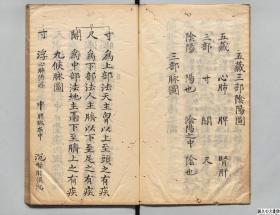 五藏三部陰陽圖
五藏 心肺 脾 腎肝
三部 寸 關 尺
陰陽 陽也 陰陽之中 陰也
三部脉圖
寸 為上部法天主胷以上至頭之有疾
尺 為下部法人主臍以下至足之有疾
關 為中部法地主膈下至臍上之有疾
九候脉圖
寸 浮 中 沉